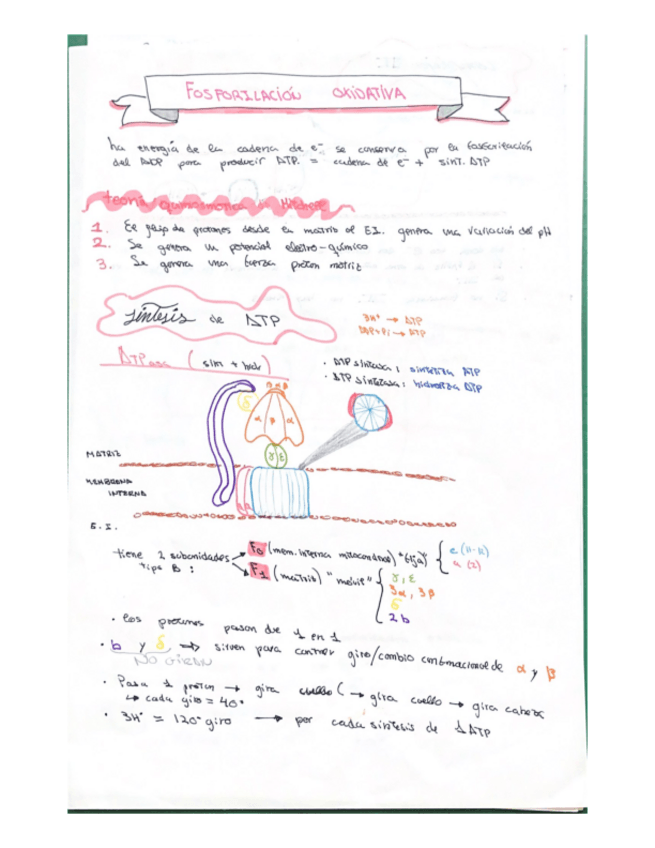 FOSFORILACIÓN OXIDATIVA
La energía de la cadena de e⁻ se conserva por la fosforilación
del ADP para producir ATP. = cadena de e⁻ + sint. ATP
teoría quimiosmótica
1. El flujo de protones desde la matriz al E.I. genera una variación del pH
2. Se genera un potencial electro-químico
3. Se genera una fuerza proton motriz
síntesis de ATP
3H⁺ → ATP
ADP+Pi → ATP
ATPasa (sint + hidr)
· ATP sintasa: sintetiza ATP
· ATP sintetasa: hidroliza ATP
δ
α β α
γ ε
MATRIZ
MEMBRANA
INTERNA
E.I.
tiene 2 subunidades
tipo B:
F₀ (mem. interna mitocondrial) "fija"
c (11-12)
a (2)
F₁ (matriz) "móvil"
γ, ε
3α, 3β
δ
2b
· Los protones pasan de 1 en 1
· b y δ → sirven para contener giro/cambio conformacional de α y β
NO GIRAN
· Pasa 1 protón → gira cuello → gira cabeza
↳ cada giro = 40°
· 3H⁺ = 120° giro → por cada síntesis de 1 ATP